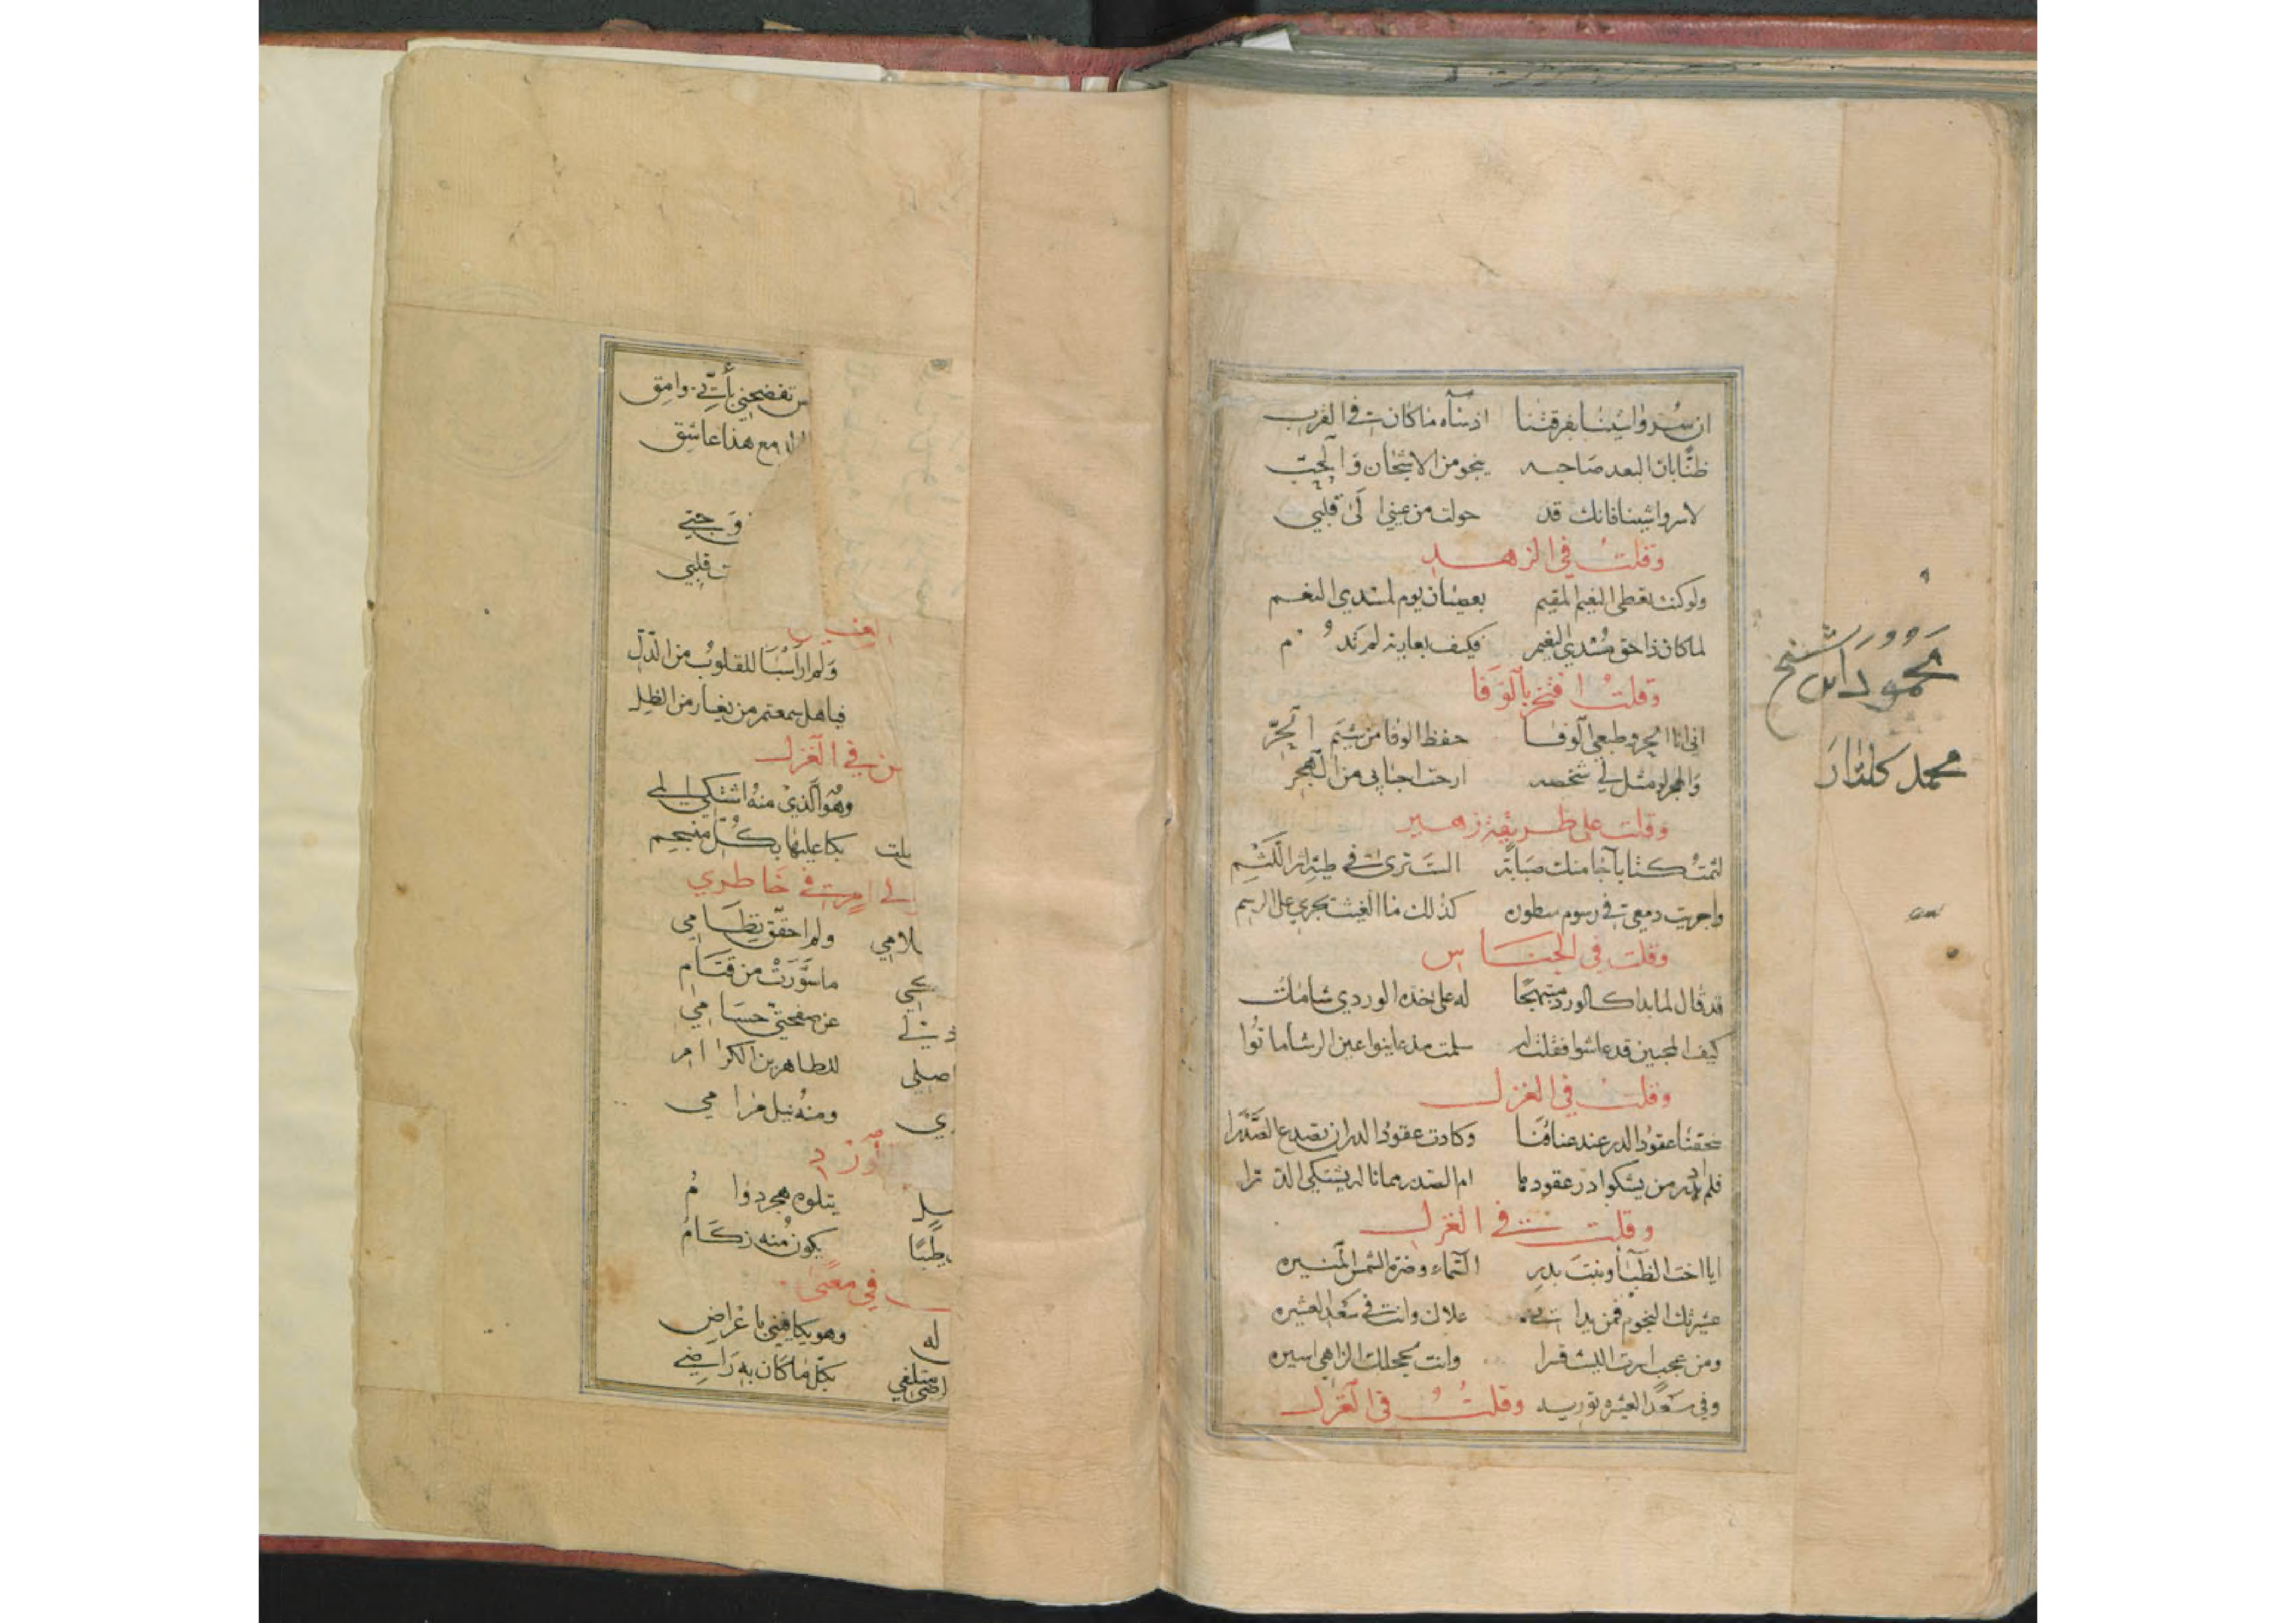 ان سر واشينا بفرقتنا اذ ساه ما كان في القرب
ظنا بان البعد صاحبه ينجو من الاشجان والحب
لا سر واشينا فانك قد حولت من عيني الى قلبي
وقلت في الزهد
ولو كنت تعطى النعيم المقيم بعصيان يوم لمسدي النعم
لما كان ذا حق مسدي النعيم فكيف بعارية لم تدم
وقلت افتخر بالوفا
اني انا الحر وطبعي الوفا حفظ الوفا من شيم الحر
والهجر لو مثل لي شخصه ارحت احبابي من الهجر
وقلت على طريقة زهير
لثمت كتابا جا منك صبابة الست ترى في طيه اثر اللثم
واجريت دمعي في رسوم سطوره كذلك ما الغيث تجري على الرسم
وقلت في الجناس
قد قال لما بدا كالورد مبتهجا له على خده الوردي شامات
كيف المحبين قد عاشوا فقلت له سلمت مذ عاينوا عين الرشا ماتوا
وقلت في الغزل
سحقنا عقود الدر عند عناقنا وكادت عقود الدر ان تصدع الصدرا
فلم ندر من يشكو اذر عقودها ام الصدر مما ناله يشتكي الدرا
وقلت في الغزل
ايا اخت الظبا وبنت بدر السماء وضرة الشمس المنيره
عشيرتك النجوم فمن يدا علاك وانت في سعد العشيره
ومن عجب اسرت الليث قسرا وانت بحجلك الزاهي اسيره
وفي سعد العشيره توريه وقلت في الغزل
محمود ابن شيخ
محمد كلدار
تفضحني باني وامق
مع هذا عاشق
وجتي
قلبي
ولم ار اسبا للقلوب من الدل
فيا هل سمعتم من يغار من الظل
في الغزل
وهو الذي منه اشتكي الي
بكا عليها بكل منسجم
في خاطري
لامي ولم احقق نظامي
ما سورت من قتام
عن صفحتي حسامي
للطاهرين الكرام
اصلي
ومنه نيل مرامي
يتلوه هجر دوام
يكون منه زكام
في معنى
له وهو يكافيني باعراض
متلفي بكل ما كان به راضي